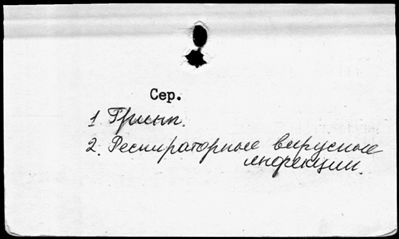 Сер.
1 Грипп.
2. Респираторные вирусные
инфекции.